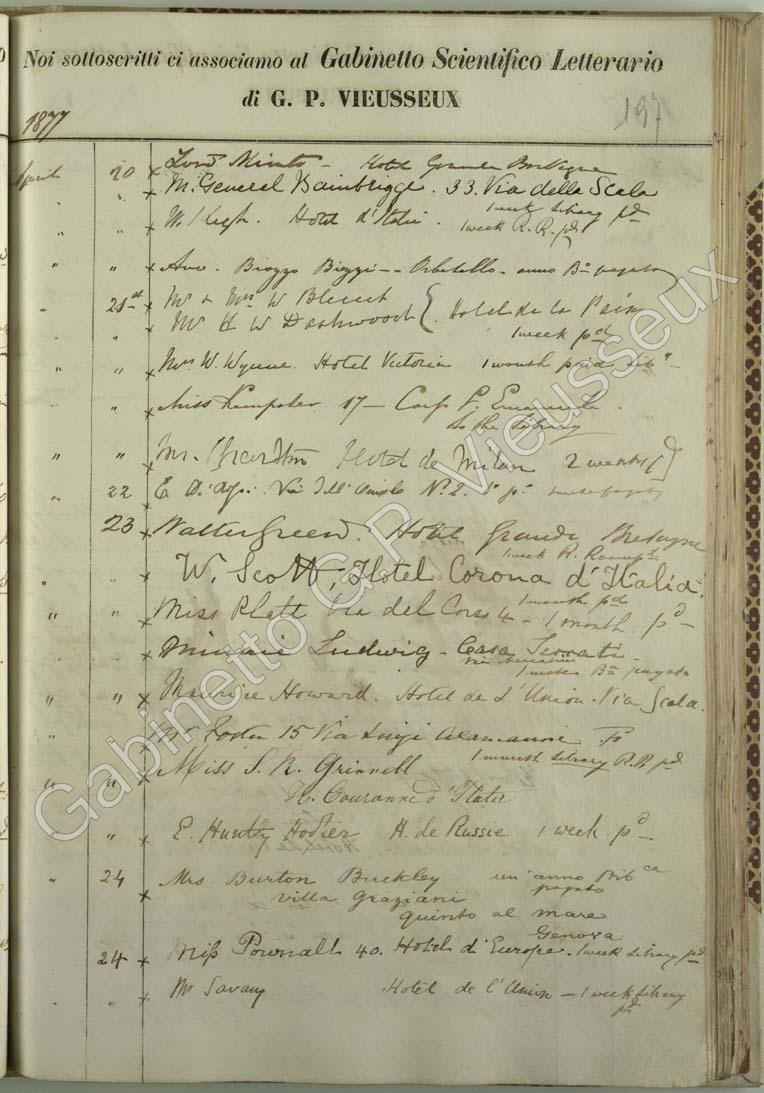 Noi sottoscritti ci associamo al Gabinetto Scientifico Letterario
di G. P. VIEUSSEUX
197
1877
April 20 x Lord Minto - Hotel Grande Bretagne
" x M. General Bainbrigge. 33. Via della Scala
" " x W. Hotel d'Italie. 1 week Library pd
1 week R. R. pd
" " x Avv. - Orbetello - anno Bca pagato
" 21st x Mr & Mrs W Blunt
" x Mr H W Dashwood } Hotel de la Paix
1 week pd
" " x Mrs W. Wynne. Hotel Victoria 1 month paid
" " x Miss 17 - Corso V. Emanuele
to the Library
" " x Mr. Hotel de Milan 2 weeks pd
" 22 x E. Via No 2.
23 x Walter Green. Hotel Grande Bretagne
1 week R. Room pd
" " x W. Scott, Hotel Corona d'Italia.
1 month pd
" " x Miss Platt Via del Corso 4 - 1 month pd -
" x Minnie Ludwig - Casa
1 mese Bca pagato
" " x Maurice Howard. Hotel de L'Union. Via Scala.
x Mr Foster 15 Via Luigi Alamanni
" " x Miss S. R. Grinnell 1 month Library R.R pd
H. Couronne d'Italie
" " x E. Huntly H. de Russie 1 week. pd
" 24 x Mrs Burton Buckley un' anno Bibca
pagato
villa Graziani
quinto al mare
Genova
24 x Miss Pownall 40. Hotel d'Europe. 1 week Library pd
" x Mr Hotel de l'Union - 1 week Library
pd
Gabinetto G.P. Vieusseux